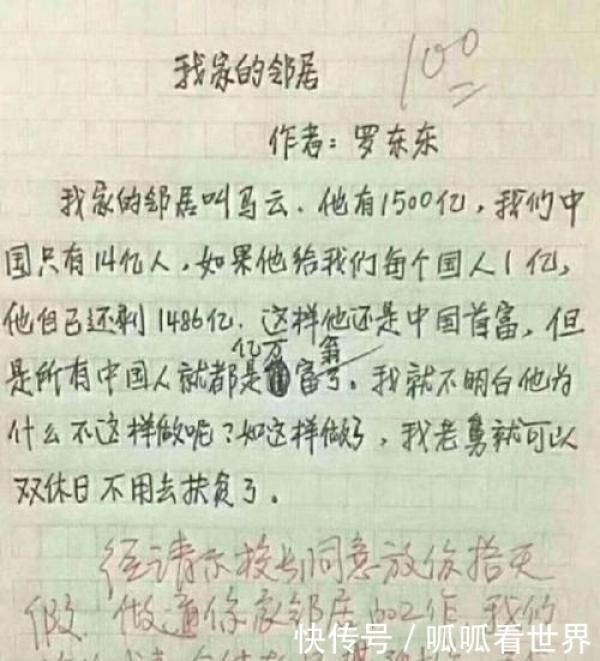 我家的邻居
100
作者：罗东东
我家的邻居叫马云.他有1500亿，我们中
国只有14亿人，如果他给我们每个国人1亿，
他自己还剩1486亿.这样他还是中国首富，但
亿万 翁
是所有中国人就都是富了。我就不明白他为
什么不这样做呢？如这样做了，我老舅就可以
双休日不用去扶贫了。
经请示校长同意放你拾天
假.做通你家邻居的工作.我们
快传号／呱呱看世界